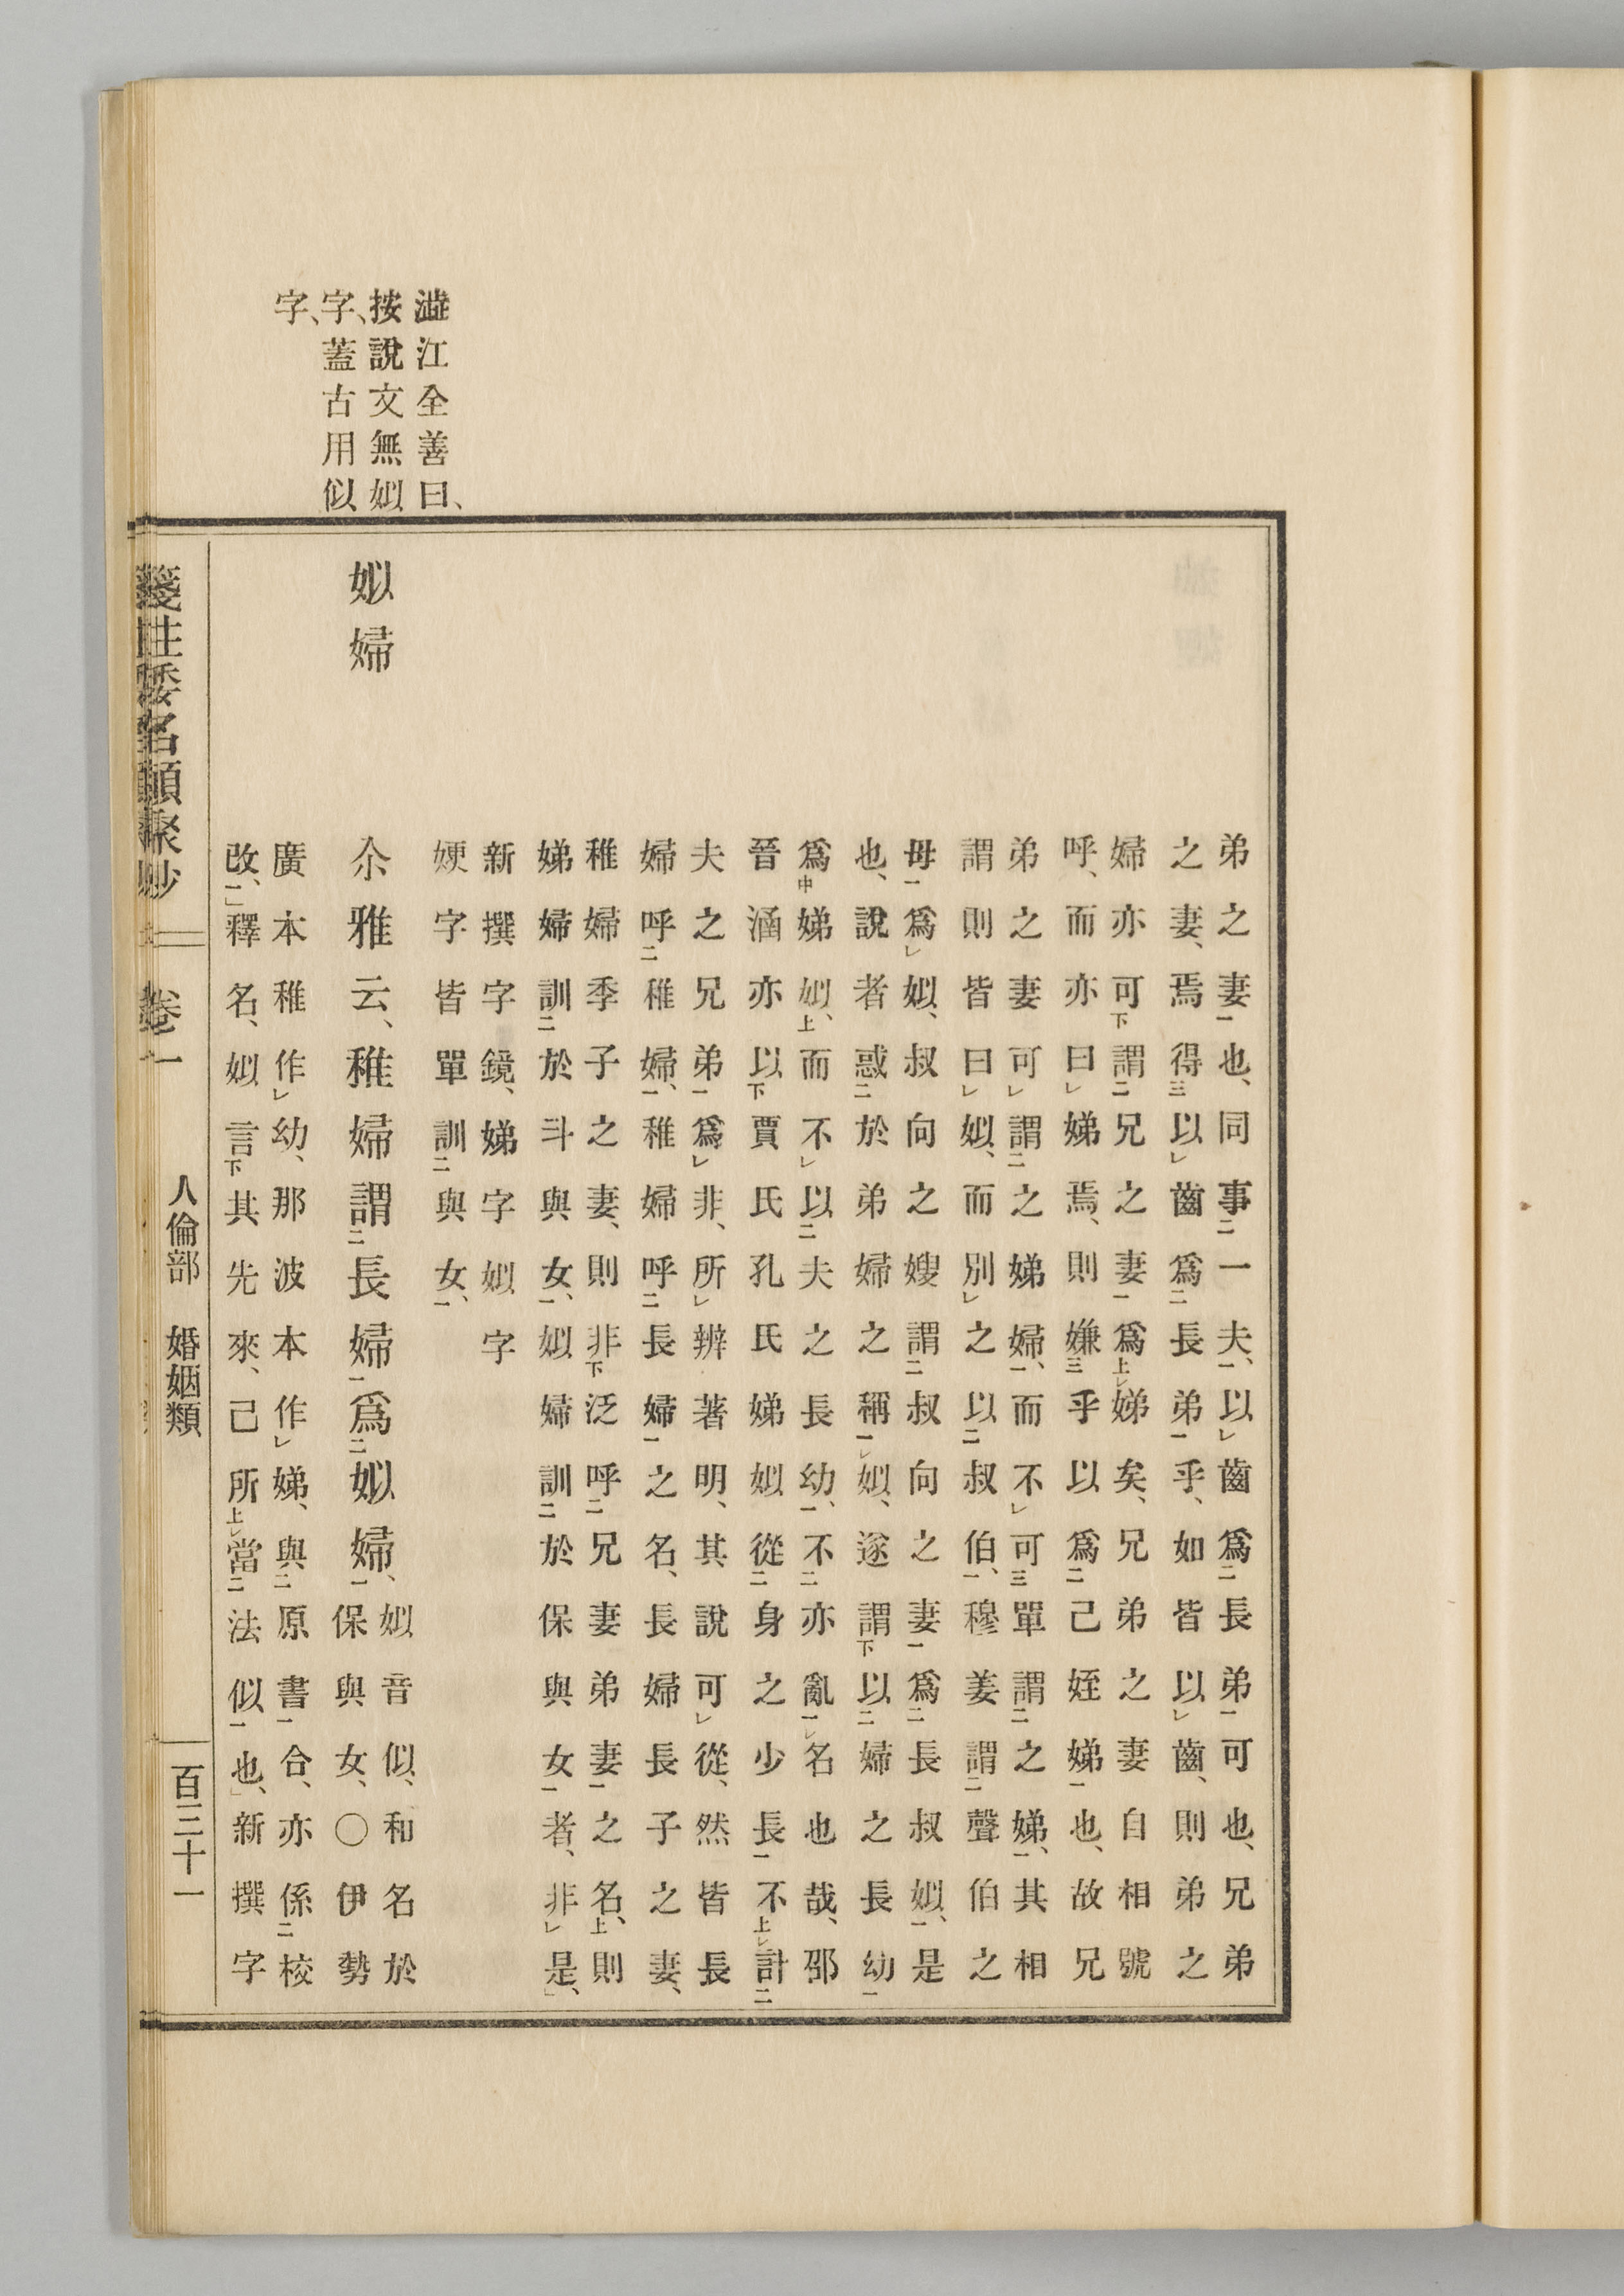 澁江全善曰、
按說文無姒
字、蓋古用似
字、
弟之妻一也、同事二一夫一、以レ齒爲二長弟一可也、兄弟
之妻、焉得三以レ齒爲二長弟一乎、如皆以レ齒、則弟之
婦亦可下謂二兄之妻一爲上レ娣矣、兄弟之妻自相號
呼、而亦曰レ娣焉、則嫌三乎以爲二己姪娣一也、故兄
弟之妻可レ謂二之娣婦一、而不レ可三單謂二之娣一、其相
謂則皆曰レ姒、而別レ之以二叔伯一、穆姜謂二聲伯之
母一爲レ姒、叔向之嫂謂二叔向之妻一爲二長叔姒一、是
也、說者惑二於弟婦之稱一レ姒、遂謂下以二婦之長幼一
爲中娣姒上、而不レ以二夫之長幼一、不二亦亂一レ名也哉、邵
晉涵亦以下賈氏孔氏娣姒從二身之少長一不上レ計二
夫之兄弟一爲レ非、所レ辨著明、其說可レ從、然皆長
婦呼二稚婦一、稚婦呼二長婦一之名、長婦長子之妻、
稚婦季子之妻、則非下泛呼二兄妻弟妻一之名上、則
娣婦訓二於斗與女一、姒婦訓二於保與女一者、非レ是、」
新撰字鏡、娣字姒字
㛐字皆單訓二與女一、
姒婦
尒雅云、稚婦謂二長婦一爲二姒婦一、
姒音似、和名於
保與女、〇伊勢
廣本稚作レ幼、那波本作レ娣、與二原書一合、亦係二校
改一、」釋名、姒言下其先來、己所上レ當二法似一也、」新撰字
箋注倭名類聚抄 卷一 人倫部 婚姻類 百三十一